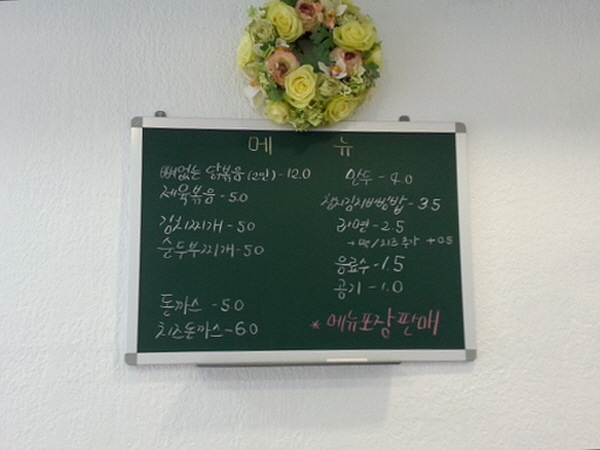 메 뉴
뼈없는 닭볶음 (2인) - 12.0
제육볶음 - 5.0
김치찌개 - 5.0
순두부찌개 - 5.0
돈까스 - 5.0
치즈돈까스 - 6.0
만두 - 4.0
참치김치비빔밥 - 3.5
라면 - 2.5
→ 떡/치즈추가 +0.5
음료수 - 1.5
공기 - 1.0
* 메뉴포장판매